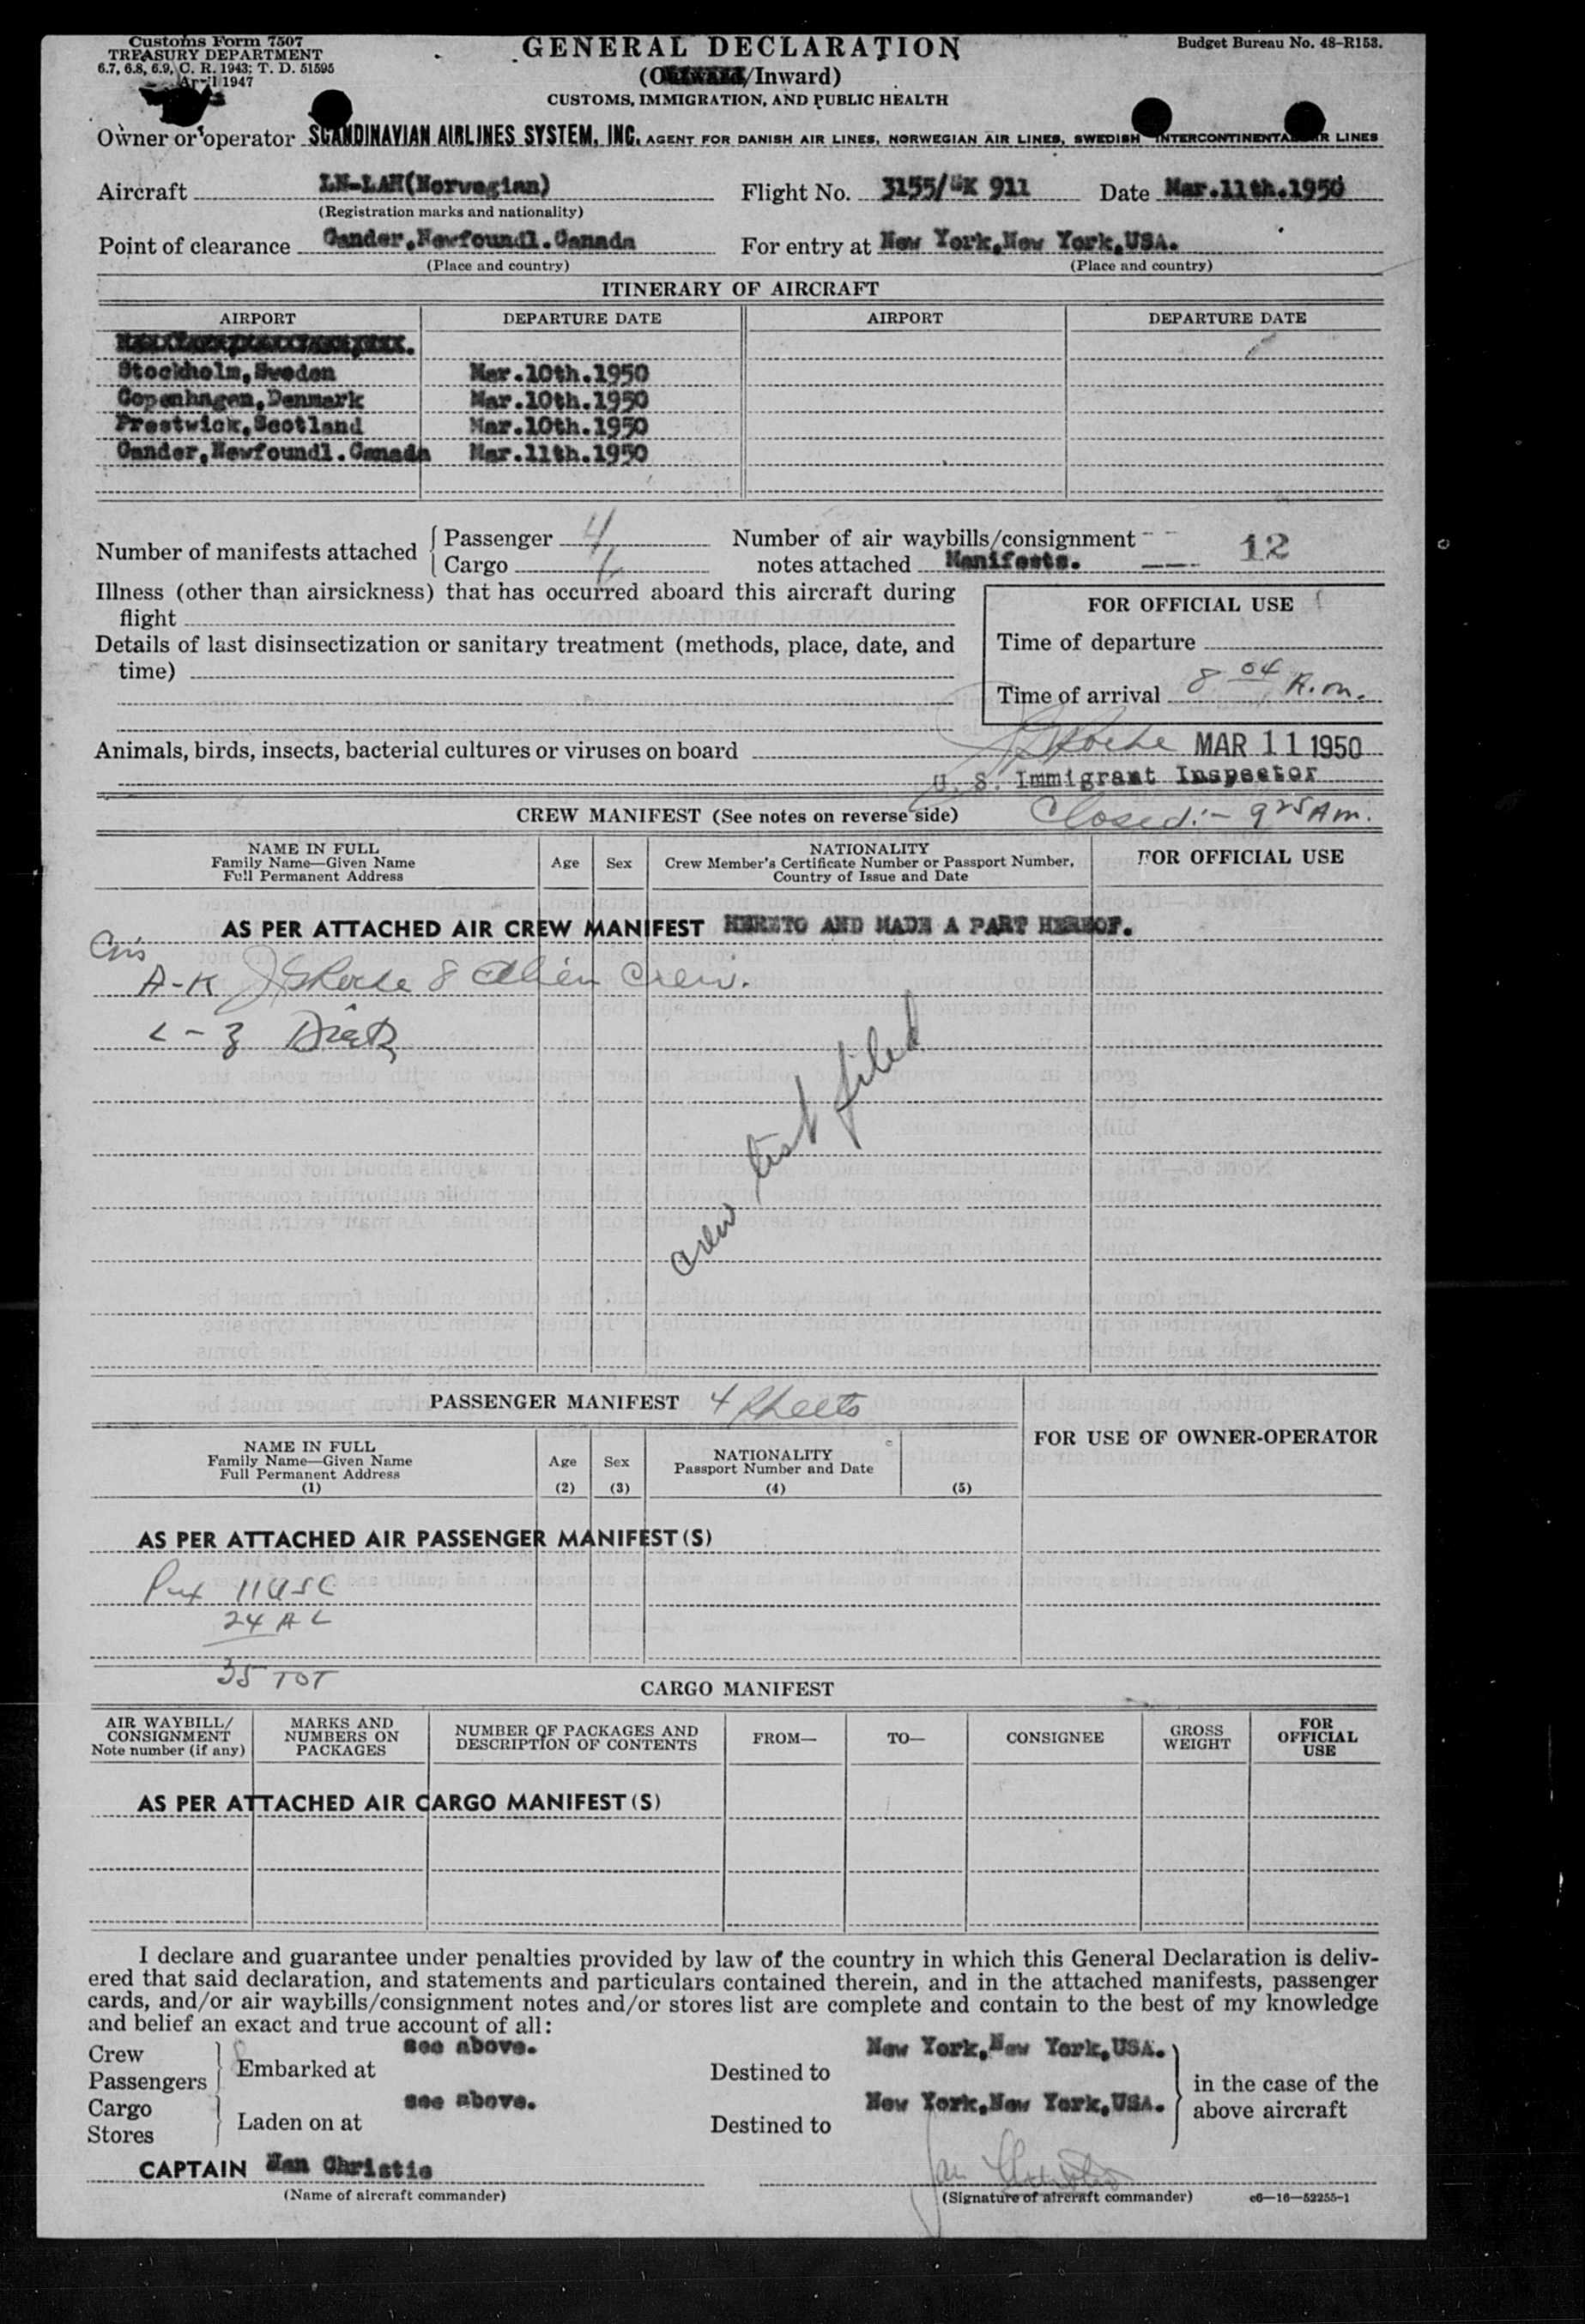 Customs Form 7507
TREASURY DEPARTMENT
6.7, 6.8, 6.9, C. R. 1943; T. D. 51595
April 1947
GENERAL DECLARATION
(Outward/Inward)
CUSTOMS, IMMIGRATION, AND PUBLIC HEALTH
Budget Bureau No. 48-R153.
Owner or operator SCANDINAVIAN AIRLINES SYSTEM, INC. AGENT FOR DANISH AIR LINES, NORWEGIAN AIR LINES, SWEDISH INTERCONTINENTAL AIR LINES
Aircraft LN-LAH(Norwegian) Flight No. 3155/SK 911 Date Mar.11th.1950
(Registration marks and nationality)
Point of clearance Gander,Newfoundl.Canada For entry at New York,New York,USA.
(Place and country) (Place and country)
ITINERARY OF AIRCRAFT
AIRPORT DEPARTURE DATE AIRPORT DEPARTURE DATE
Stockholm,Sweden Mar.10th.1950
Copenhagen,Denmark Mar.10th.1950
Prestwick,Scotland Mar.10th.1950
Gander,Newfoundl.Canada Mar.11th.1950
Number of manifests attached Passenger 4 Number of air waybills/consignment
Cargo notes attached Manifests. 12
Illness (other than airsickness) that has occurred aboard this aircraft during
flight
FOR OFFICIAL USE
Details of last disinsectization or sanitary treatment (methods, place, date, and
time)
Time of departure
Time of arrival 8 04 A.m.
Animals, birds, insects, bacterial cultures or viruses on board
MAR 11 1950
U. S. Immigrant Inspector
CREW MANIFEST (See notes on reverse side) Closed:- 9 25 Am.
NAME IN FULL
Family Name—Given Name
Full Permanent Address
Age Sex
NATIONALITY
Crew Member's Certificate Number or Passport Number,
Country of Issue and Date
FOR OFFICIAL USE
AS PER ATTACHED AIR CREW MANIFEST HERETO AND MADE A PART HEREOF.
A-K 8 Alien Crew.
L-Z
Crew list filed
PASSENGER MANIFEST 4 Sheets
NAME IN FULL
Family Name—Given Name
Full Permanent Address
(1)
Age
(2)
Sex
(3)
NATIONALITY
Passport Number and Date
(4) (5)
FOR USE OF OWNER-OPERATOR
AS PER ATTACHED AIR PASSENGER MANIFEST(S)
Pax 11 USC
24 AL
35 TOT
CARGO MANIFEST
AIR WAYBILL/
CONSIGNMENT
Note number (if any)
MARKS AND
NUMBERS ON
PACKAGES
NUMBER OF PACKAGES AND
DESCRIPTION OF CONTENTS
FROM— TO— CONSIGNEE
GROSS
WEIGHT
FOR
OFFICIAL
USE
AS PER ATTACHED AIR CARGO MANIFEST(S)
I declare and guarantee under penalties provided by law of the country in which this General Declaration is deliv-
ered that said declaration, and statements and particulars contained therein, and in the attached manifests, passenger
cards, and/or air waybills/consignment notes and/or stores list are complete and contain to the best of my knowledge
and belief an exact and true account of all:
Crew
Passengers
Embarked at see above. Destined to New York,New York,USA.
Cargo
Stores
Laden on at see above. Destined to New York,New York,USA.
in the case of the
above aircraft
CAPTAIN Jan Christie
(Name of aircraft commander) (Signature of aircraft commander) c6—16—52255-1